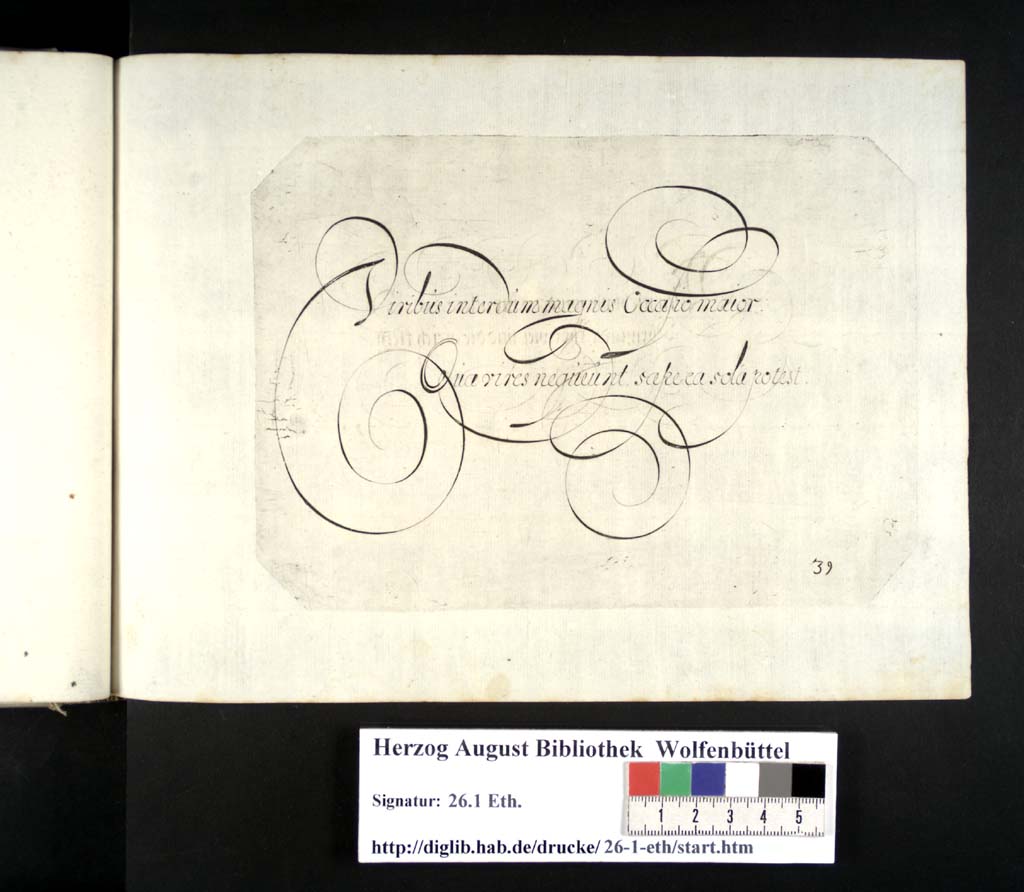 Viribus interdum magnis Occasio maior.
Qua vires nequeunt sæpe ea sola potest.
39
Herzog August Bibliothek Wolfenbüttel
Signatur: 26.1 Eth.
1 2 3 4 5
http://diglib.hab.de/drucke/26-1-eth/start.htm